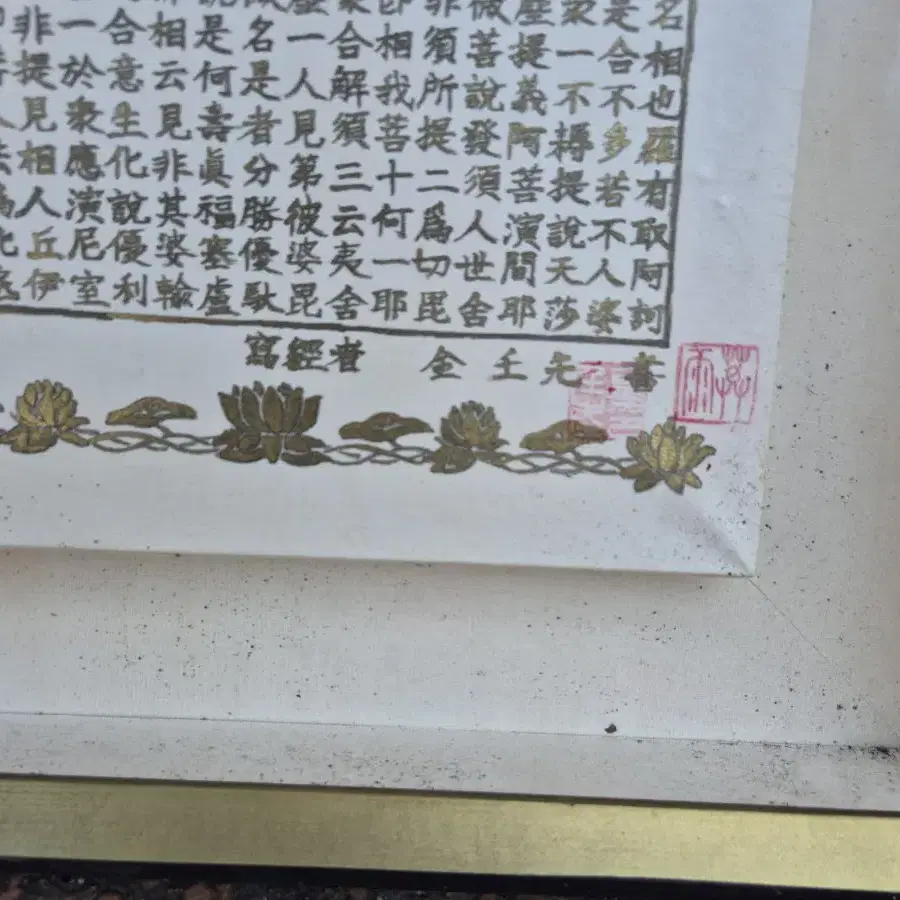 名相也羅有取阿訶
是合不多若不人婆
衆一不得提說天莎
塵提義阿菩演間耶
微菩說發須人世舍
非須所提二爲切毘
卽相我菩十何一耶
衆合解須三云夷舍
塵一人見第彼婆毘
名是者分勝優馱
說是何壽眞福塞盧
相云見非其婆輸
合意生化說優利
一於衆應演尼室
非提見相人丘伊
寫經者 金壬先 書